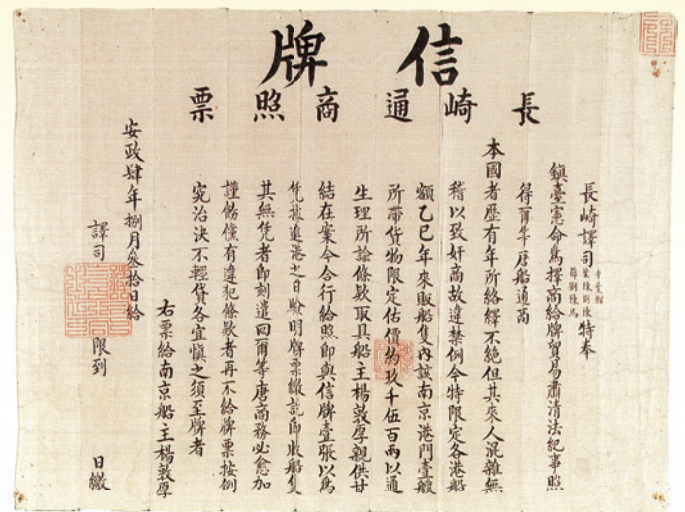 信牌
長崎通商照票
長崎譯司
特奉
鎮臺憲命為擇商給牌貿易肅清法紀事照
得爾等唐船通商
本國者歷有年所絡繹不絕但其來人混雜無
稽以致奸商故違禁例今特限定各港船
額乙巳年來販船隻內該南京港門壹艘
所帶貨物限定估價約玖千伍百兩以通
生理所諭條款取具船主楊敦厚親供甘
結在案今合行給照即與信牌壹張以為
凭據進港之日驗明牌票繳訖即收船隻
其無凭者即刻遣回爾等唐商務必愈加
謹飭儻有違犯條款者再不給牌票按例
究治決不輕貸各宜慎之須至牌者
右票給南京船主楊敦厚
安政肆年捌月叁拾日給
譯司
限到 日繳